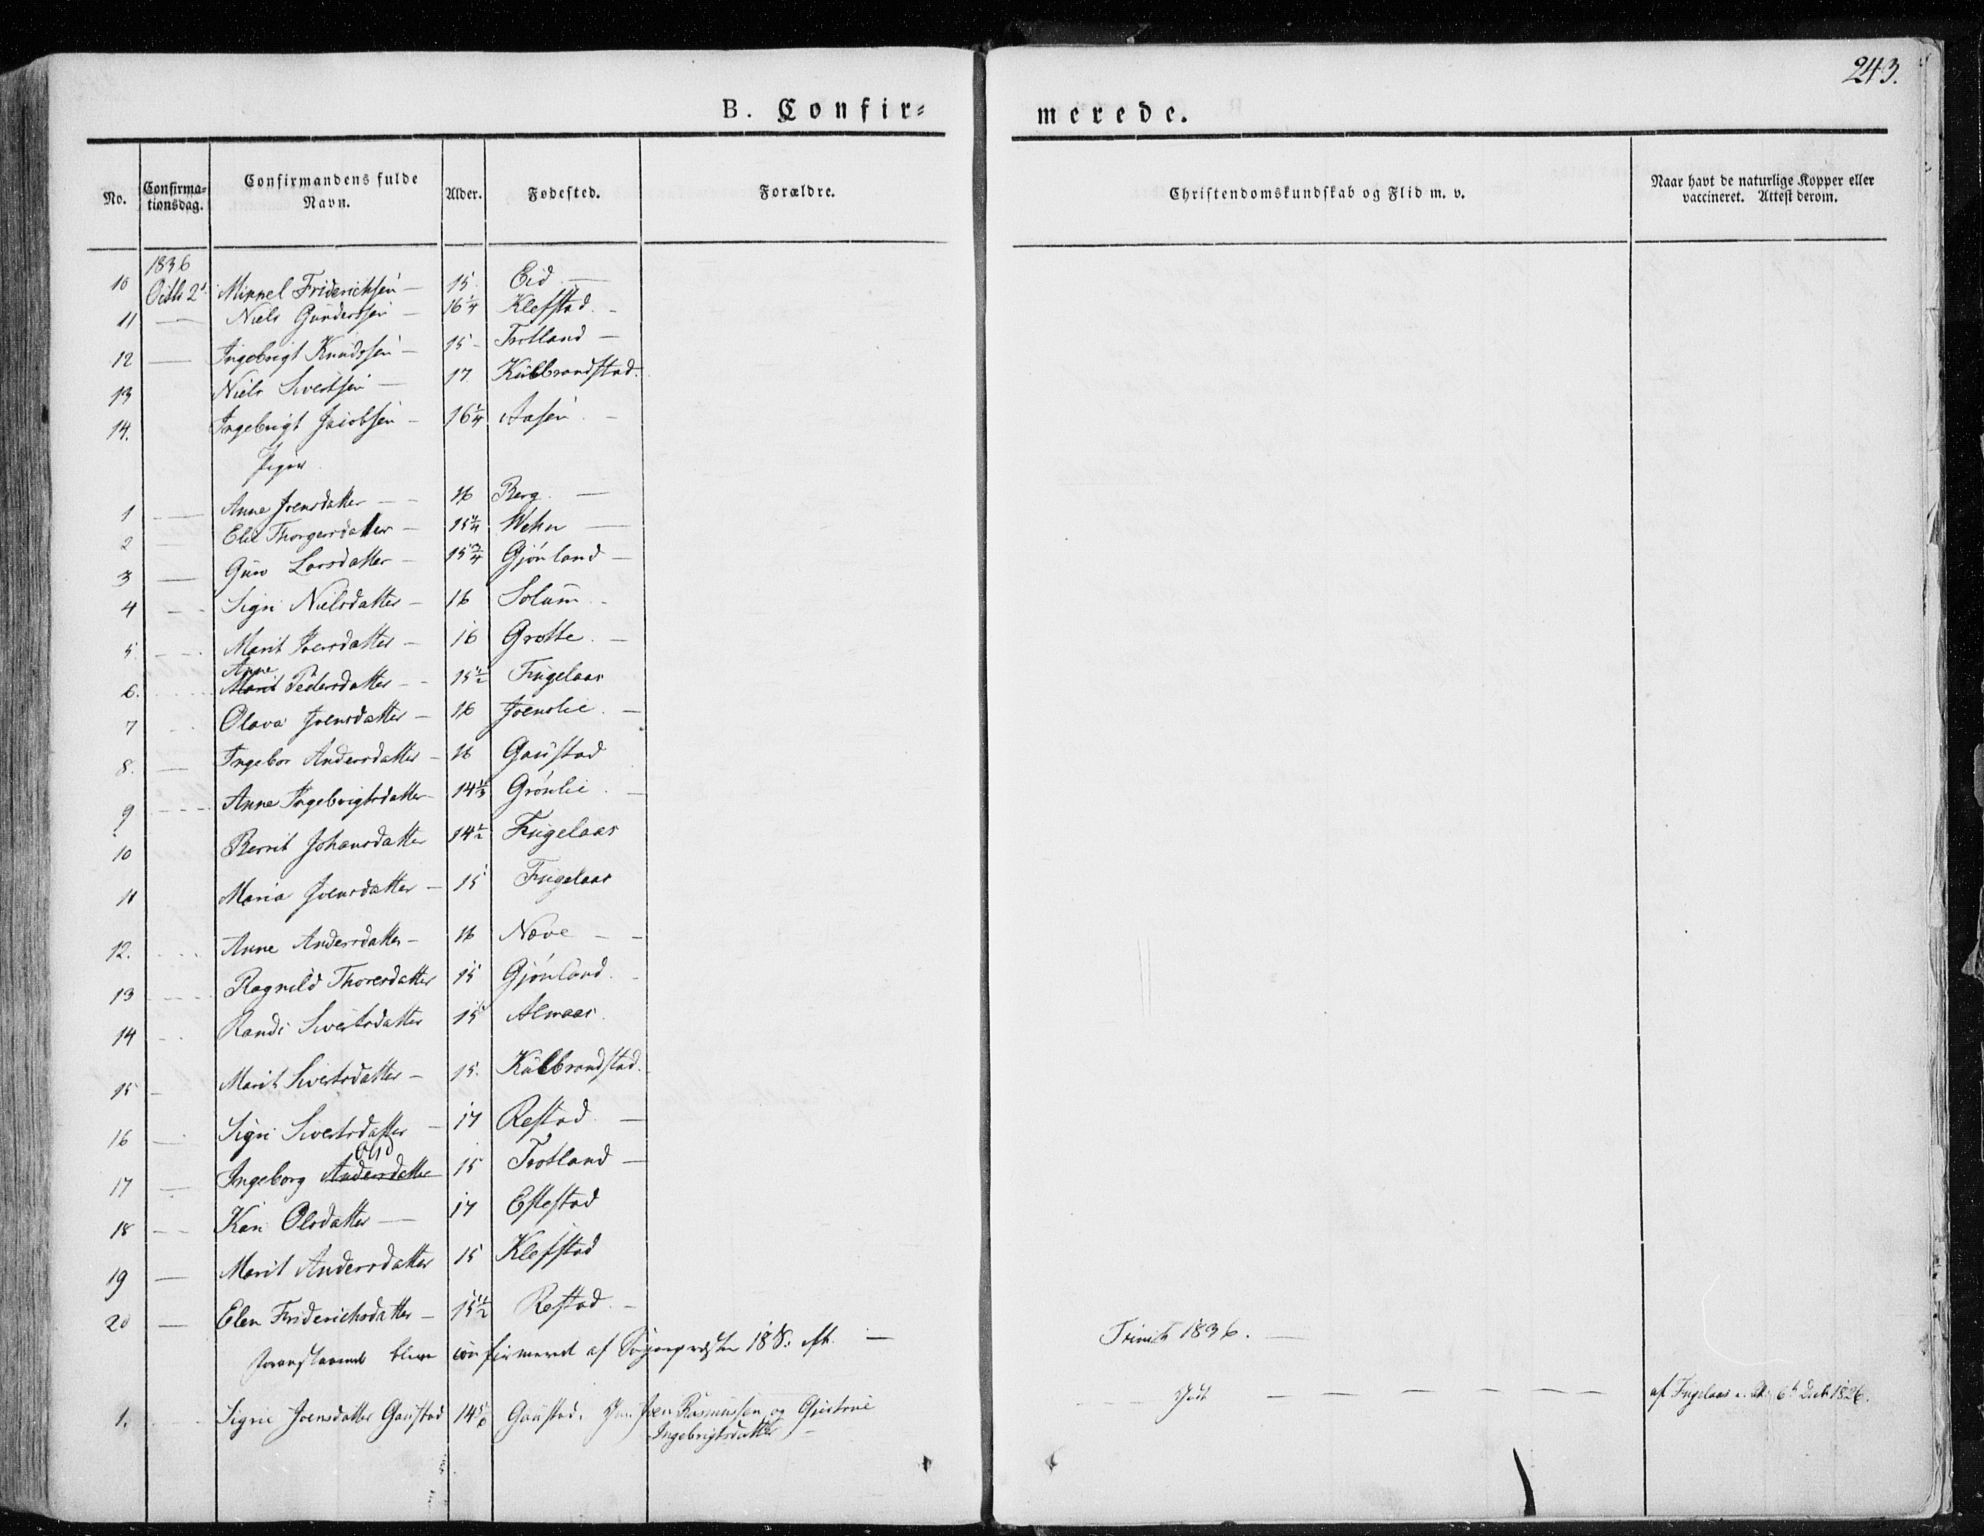 243.
B. Confir=
merede.
No.
Confirma-
tionsdag.
Confirmandens fulde
Navn.
Alder.
Fødested.
Forældre.
Christendomskundskab og Flid m. v.
Naar havt de naturlige Kopper eller
vaccineret. Attest derom.
1836
10 Octb 2d Mikkel Friderichsen — 15 Eid —
11 — Niels Gundersen — 16 1/4 Klefstad —
12 — Ingebrigt Knudsen — 15 — Trotland —
13 Niels Sivertsen — 17 Kulbrandstad.
14. Ingebrigt Jacobsen — 16 1/4 Aasen —
Piger
1 — Anne Joensdatter — 16 Berg —
2 — Elie Thorgersdatter — 15 1/4 Wehn —
3 — Guro Larsdatter — 15 3/4 Gjönland —
4 — Sigri Nielsdatter — 16 Solum —
5 — Marit Iversdatter — 16 Grotte —
Anne
6. Marit Pedersdatter — 15 1/2 Fugelaas
7 — Olava Joensdatter — 16 Joenslie —
8. — Ingebor Andersdatter — 16 Gaustad
9 — Anne Ingebrigtsdatter — 14 1/3 Grönlie —
10 Berit Johansdatter 14 1/2 Fugelaas
11 Maria Joensdatter — 15 Fugelaas
12. Anne Andersdatter — 16 Næve —
13 — Ragnild Thoresdatter 15 Gjönland —
14 — Randi Sivertsdatter 15 Almaas.
15 — Marit Sivertsdatter — 15. Kulbrandstad.
16 — Sigri Sivertsdatter — 17 Restad —
Olsd
17 — Ingeborg Andersdatter 15 Trotland —
18 — Kari Olsdatter — 17 Estestad
19 — Marit Andersdatter 15 Klefstad
20 — Elen Friderichsdatter — 15 1/2 Restad —
Foranstaaende bleve confirmered af Sognepræsten 18 S. eft. —
Trinit 1836. —
1. Sigrie Joensdatter Gaustad 14 5/6 Gaustad. Joen Rasmussen og Gjertrue
Ingebrigtsdatter —
Godt — — — — — —
af Fugelaas a. At: 6t Decb 1826.